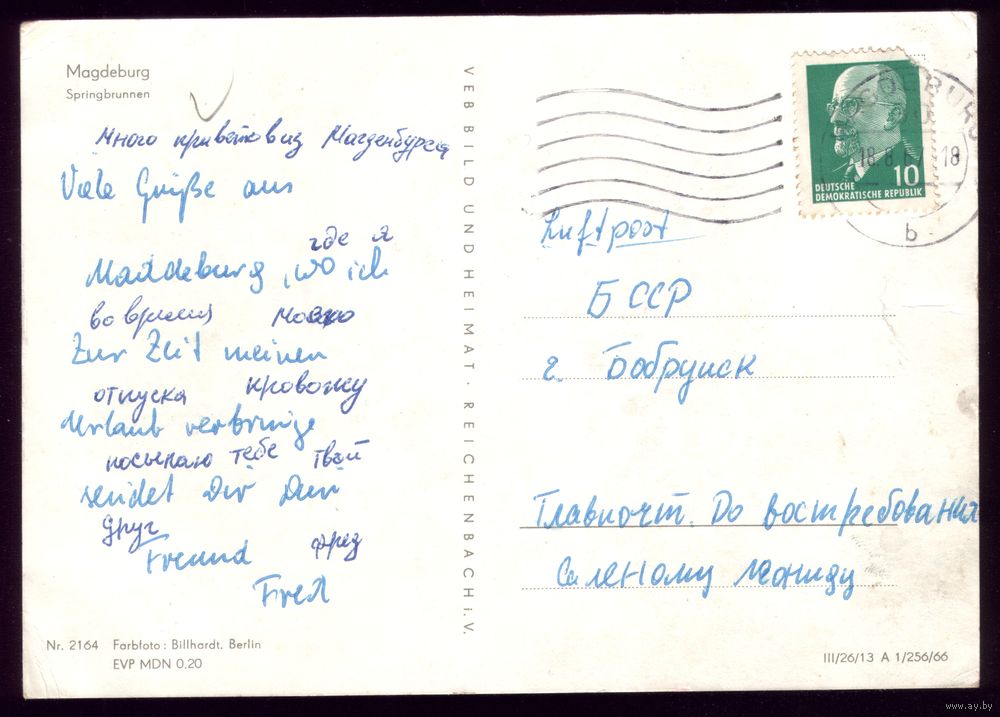 Magdeburg
Springbrunnen
много приветов из Магденбурга
Viele Grüße aus
где я
Magdeburg, wo ich
во время моего
Zur Zeit meinen
отпуска провожу
Urlaub verbringe
посылаю тебе твой
sendet Dir Dein
друг
Freund
фрез
Fred
Nr. 2164 Farbfoto: Billhardt, Berlin
EVP MDN 0,20
VEB BILD UND HEIMAT · REICHENBACH i. V.
10
DEUTSCHE
DEMOKRATISCHE REPUBLIK
18.8.6 18
b
Luftpost
БССР
г. Бобруйск
Главпочт. До востребования
Соленому Леониду
III/26/13 A 1/256/66
www.ay.by